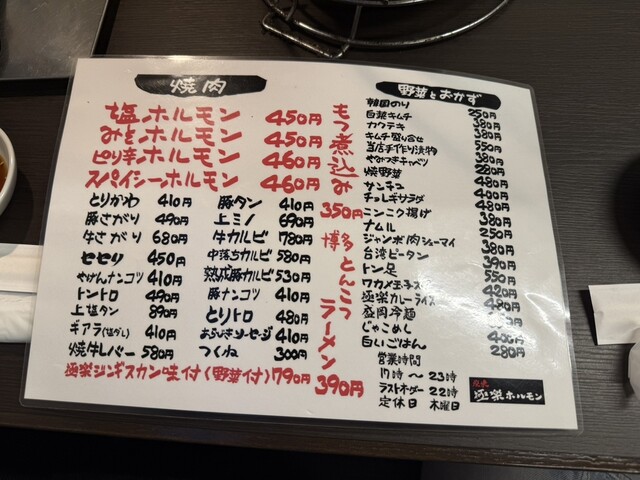 焼肉
塩ホルモン 450円
みそホルモン 450円
ピリ辛ホルモン 460円
スパイシーホルモン 460円
とりかわ 410円
豚さがり 490円
牛さがり 680円
セセリ 450円
やげんナンコツ 410円
トントロ 490円
上塩タン 890円
ギアラ(塩ダレ) 410円
焼牛レバー 580円
豚タン 410円
上ミノ 690円
牛カルビ 780円
中落ちカルビ 580円
熟成豚カルビ 530円
豚ナンコツ 410円
とりトロ 480円
あらびきソーセージ 410円
つくね 300円
極楽ジンギスカン味付(野菜付)790円
もつ煮込み
350円
博多とんこつラーメン
390円
野菜とおかず
韓国のり 250円
白菜キムチ 380円
カクテキ 380円
キムチ盛り合せ 550円
当店手作り漬物 380円
やみつきキャベツ 280円
焼野菜 480円
サンチュ 400円
チョレギサラダ 480円
ニンニク揚げ 380円
ナムル 250円
ジャンボ肉シューマイ 380円
台湾ピータン 390円
トン足 550円
ワカメ玉子 420円
極楽カレーライス 480円
盛岡冷麺
じゃこめし 400円
白いごはん 280円
営業時間
17時～23時
ラストオーダー22時
定休日 木曜日
極楽ホルモン